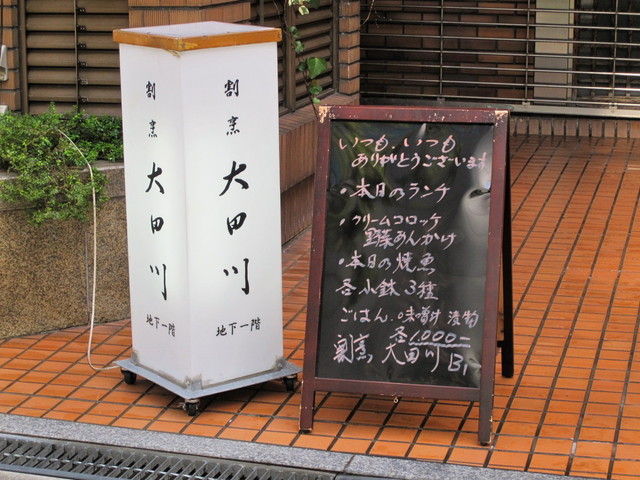 割烹
大田川
地下一階
割烹
大田川
地下一階
いつも、いつも
ありがとうございます
・本日のランチ
・クリームコロッケ
野菜あんかけ
・本日の焼魚
各小鉢3種
ごはん、味噌汁 漬物
各1,000-
割烹 大田川 B1